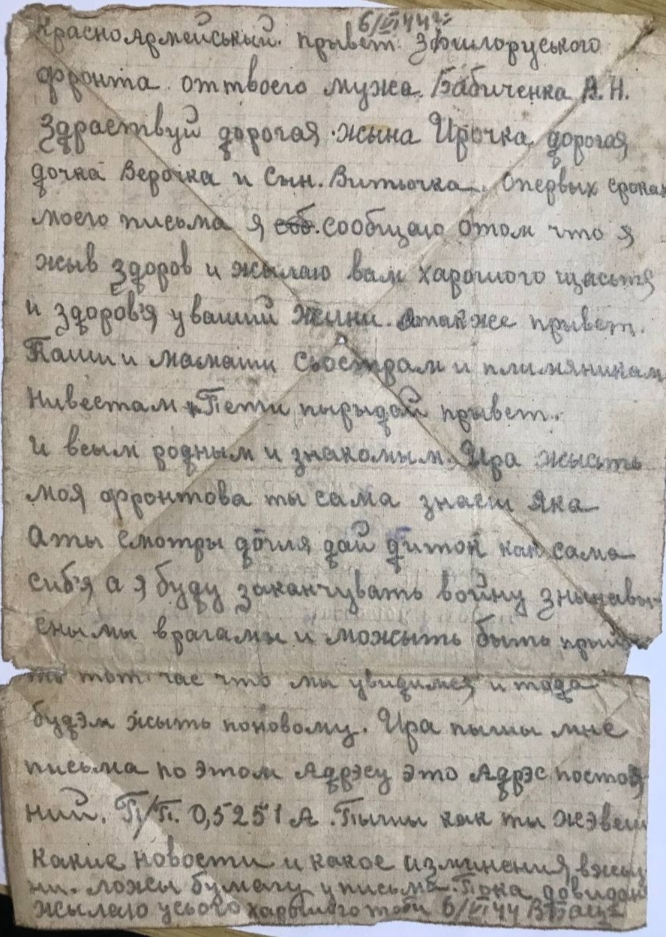 6/VI 44 г
Красноармейський. привет. з билоруського
фронта. от твоего мужа. Бабиченка А. Н.
Здраствуй дорогая. жына Ирочка, дорогая
дочка Верочка и Сын. Витючка. Опервых сроках
моего письма я соб. сообщаю отом что я
жыв здоров и жылаю вам харошого щастя
и здоров'я у ваший жини. атакже привет.
Папи и мамаши сьострам и плимяникам
нивестам Пети пырыдай привет.
и всым родным и знакомым. Ира жысть
моя фронтова ты сама знаеш яка
А ты смотры догля дай диток как сама
сиб'я а я буду заканчувать войну
врагамы и можыть быть
тот час что мы увидимся и тода
будэм жыть поновому. Ира пышы мне
письма по этом Адрэсу это Адрэс постоя
ний. П/П. 0,5251 А. Пышы как ты жэвеш
какие новости и какое изминения, вжыз
ни. ложы бумагу у письма. Пока довидан
жылаю усього харошого тоби 6/VI 44